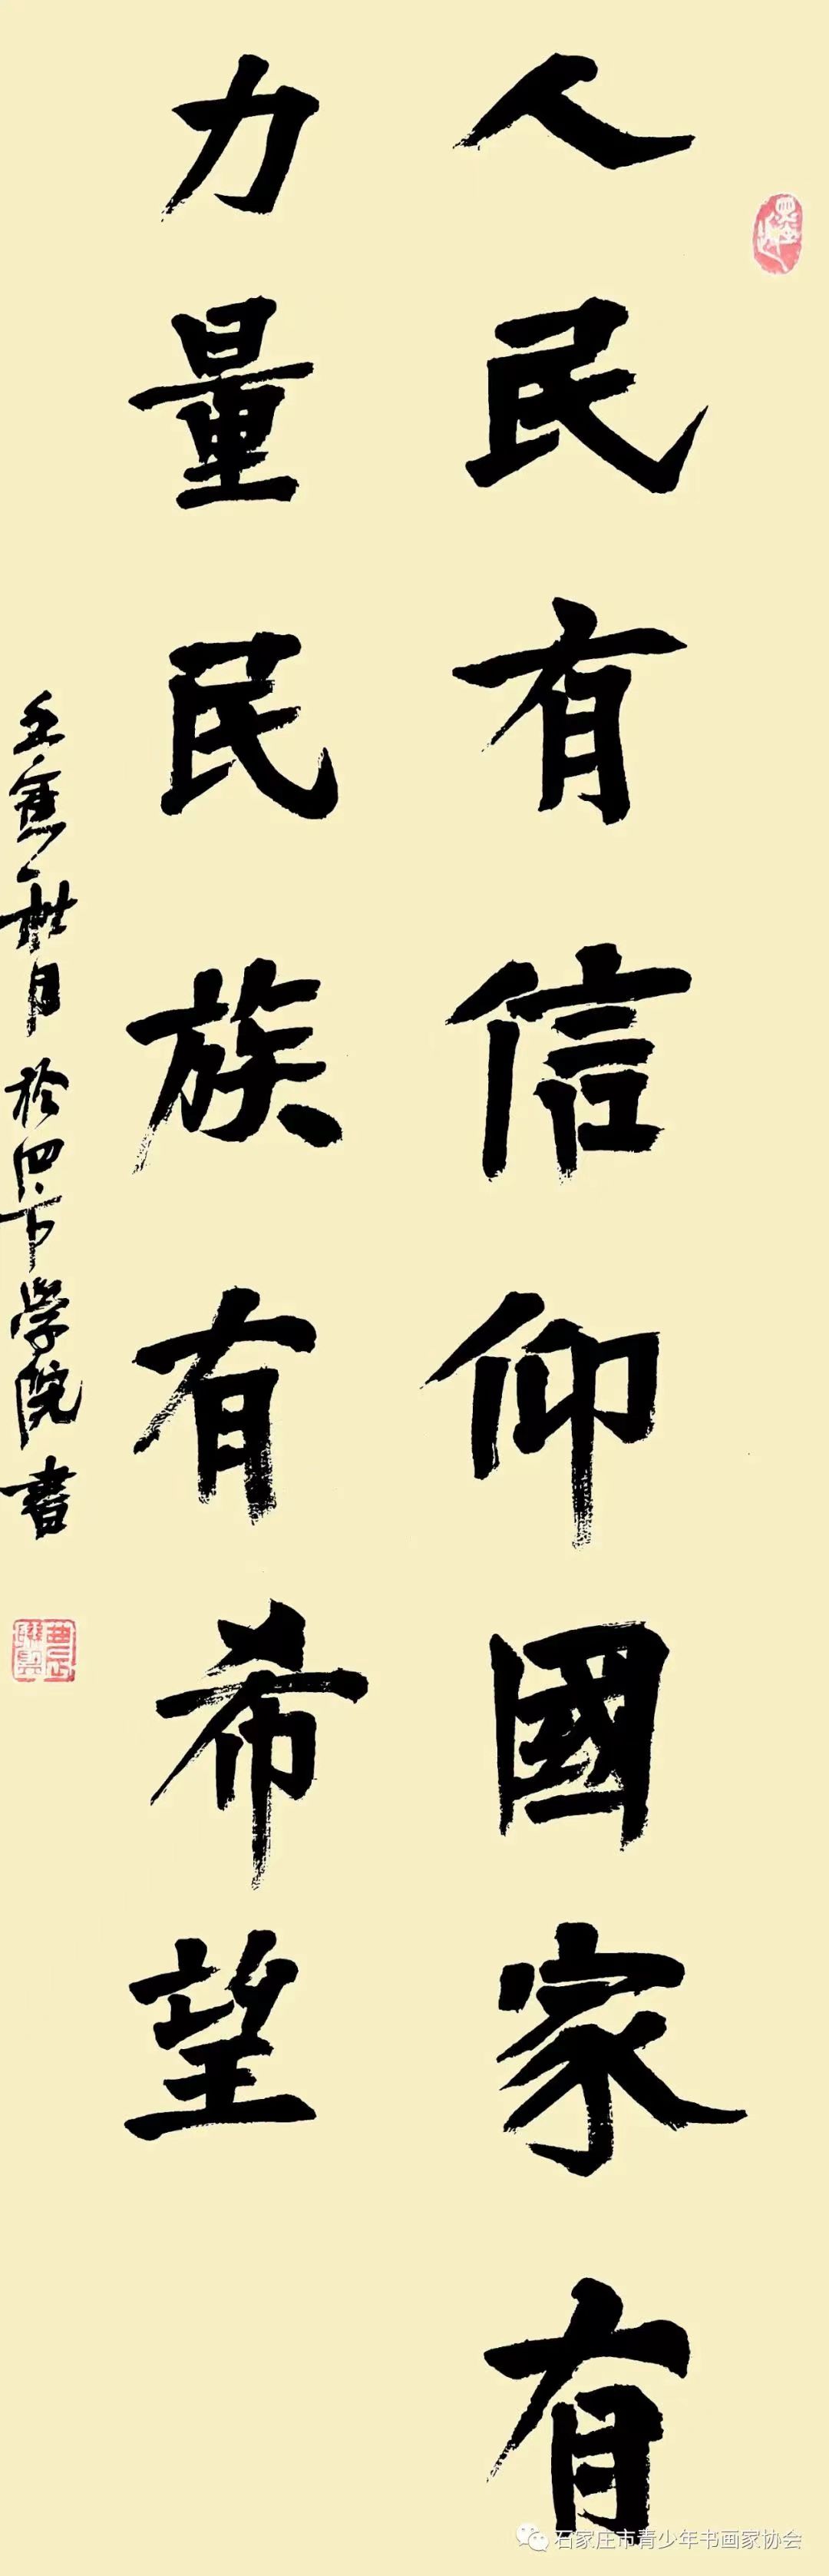 人民有信仰國家有
力量民族有希望
壬寅秋月於四中學院書
石家庄市青少年书画家协会